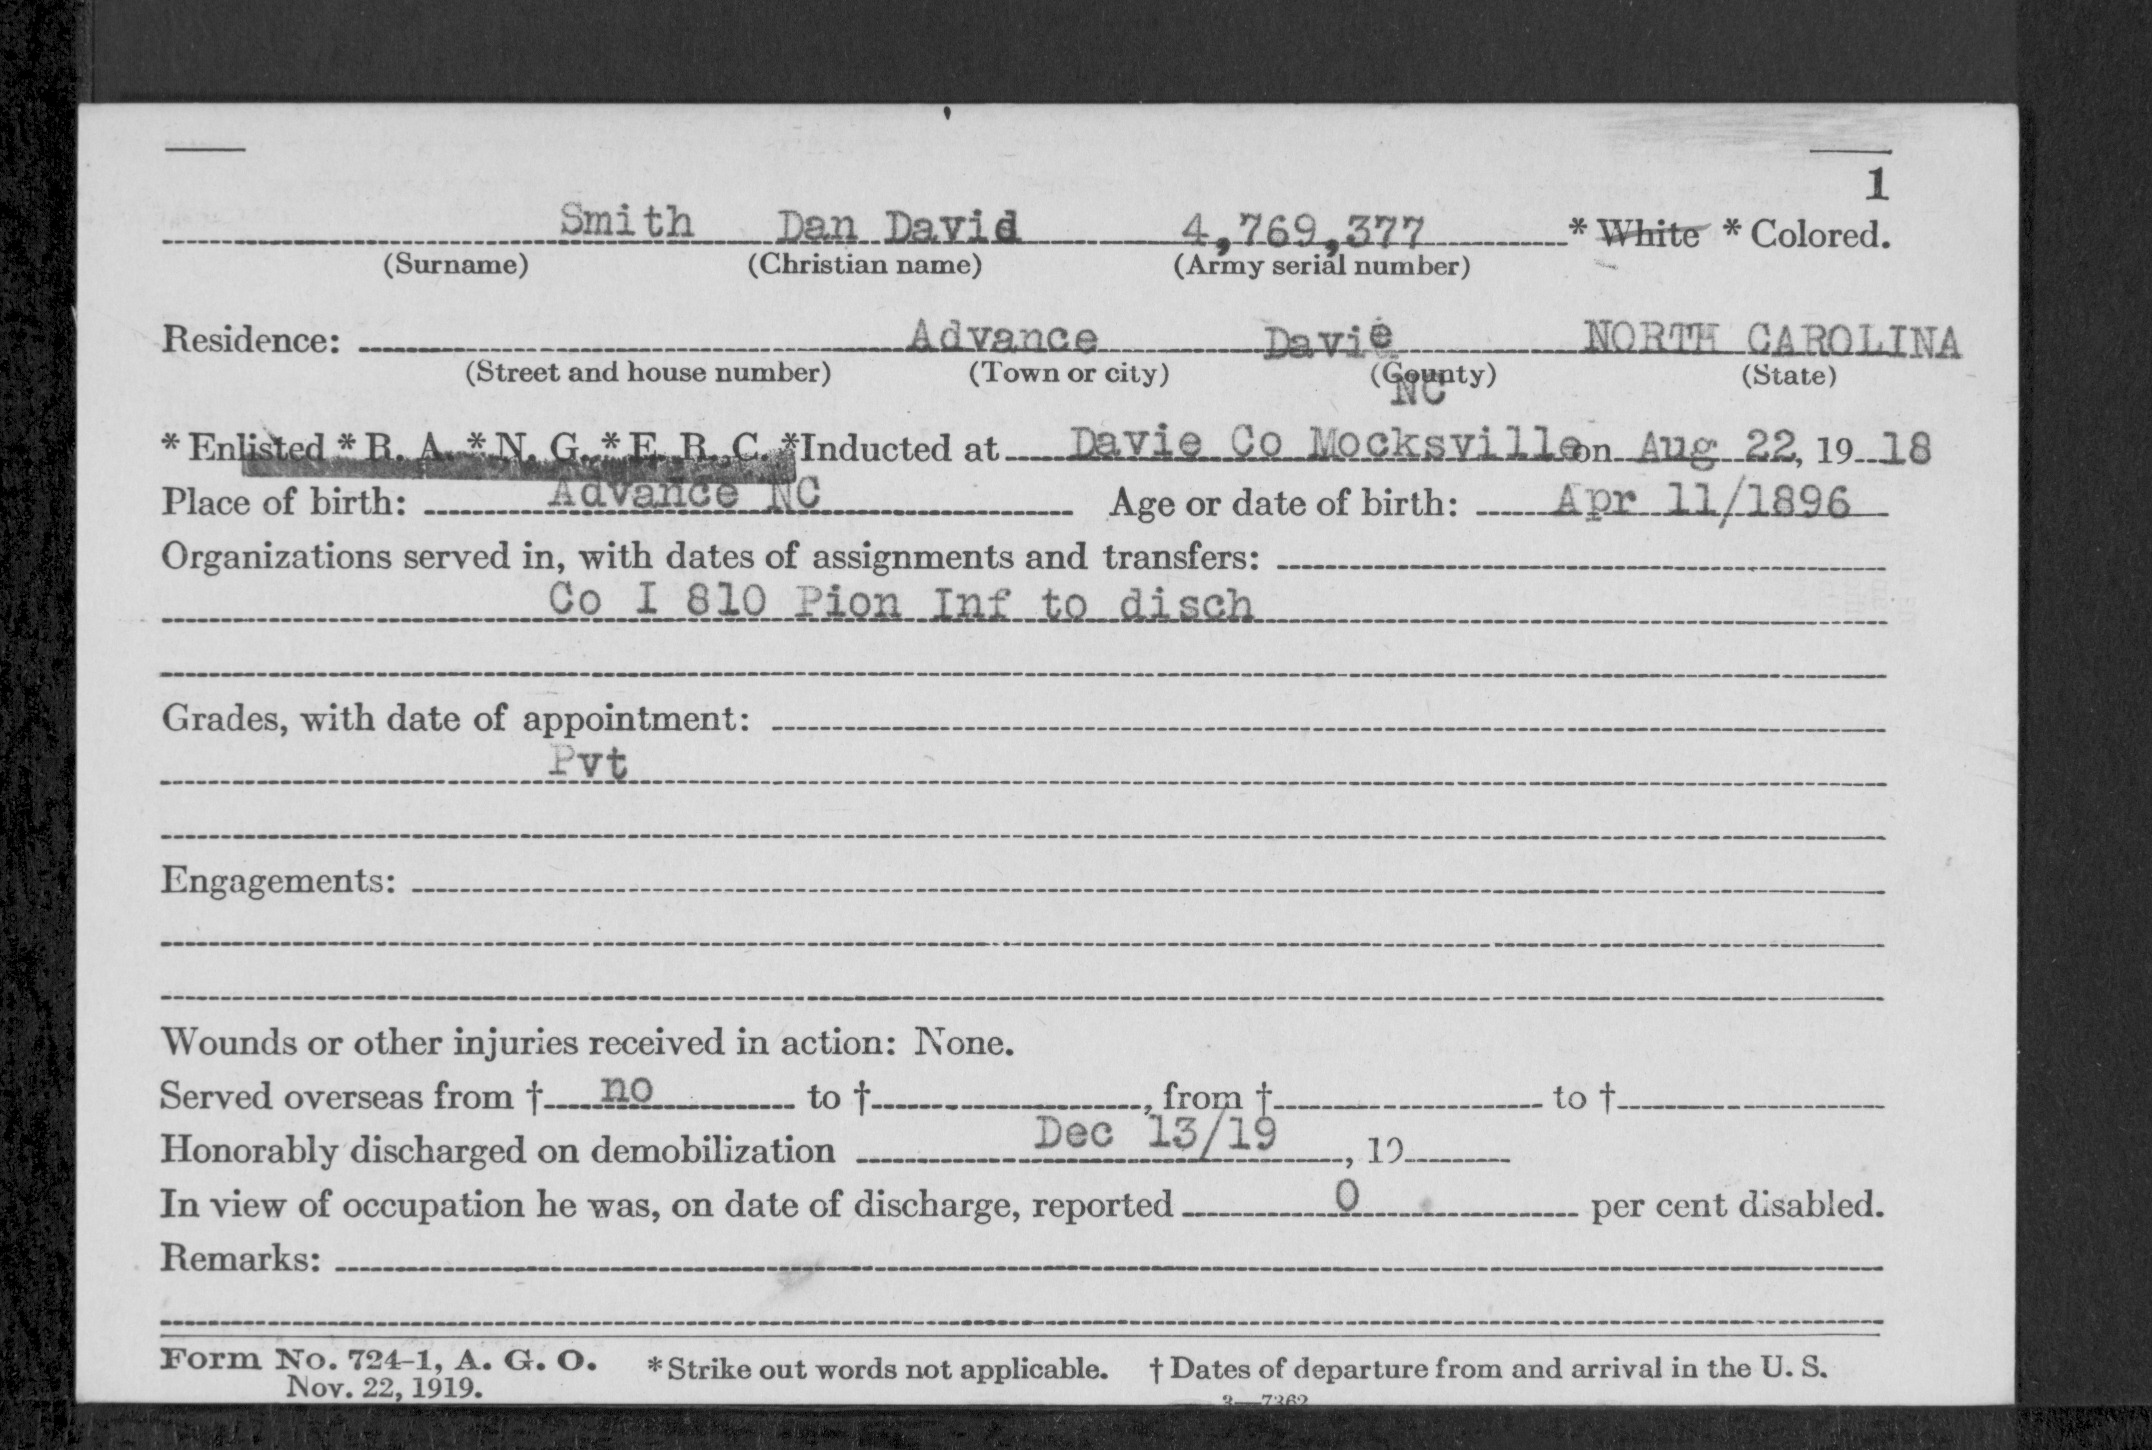 1
Smith Dan David 4,769,377 * White * Colored.
(Surname) (Christian name) (Army serial number)
Residence: Advance Davie NORTH CAROLINA
(Street and house number) (Town or city) (County) (State)
NC
* Enlisted * R. A. * N. G. * E. R. C. *Inducted at Davie Co Mocksville on Aug 22, 19 18
Place of birth: Advance NC Age or date of birth: Apr 11/1896
Organizations served in, with dates of assignments and transfers:
Co I 810 Pion Inf to disch
Grades, with date of appointment:
Pvt
Engagements:
Wounds or other injuries received in action: None.
Served overseas from † no to † , from † to †
Honorably discharged on demobilization Dec 13/19 , 19
In view of occupation he was, on date of discharge, reported 0 per cent disabled.
Remarks:
Form No. 724-1, A. G. O. * Strike out words not applicable. † Dates of departure from and arrival in the U. S.
Nov. 22, 1919.
3—7362